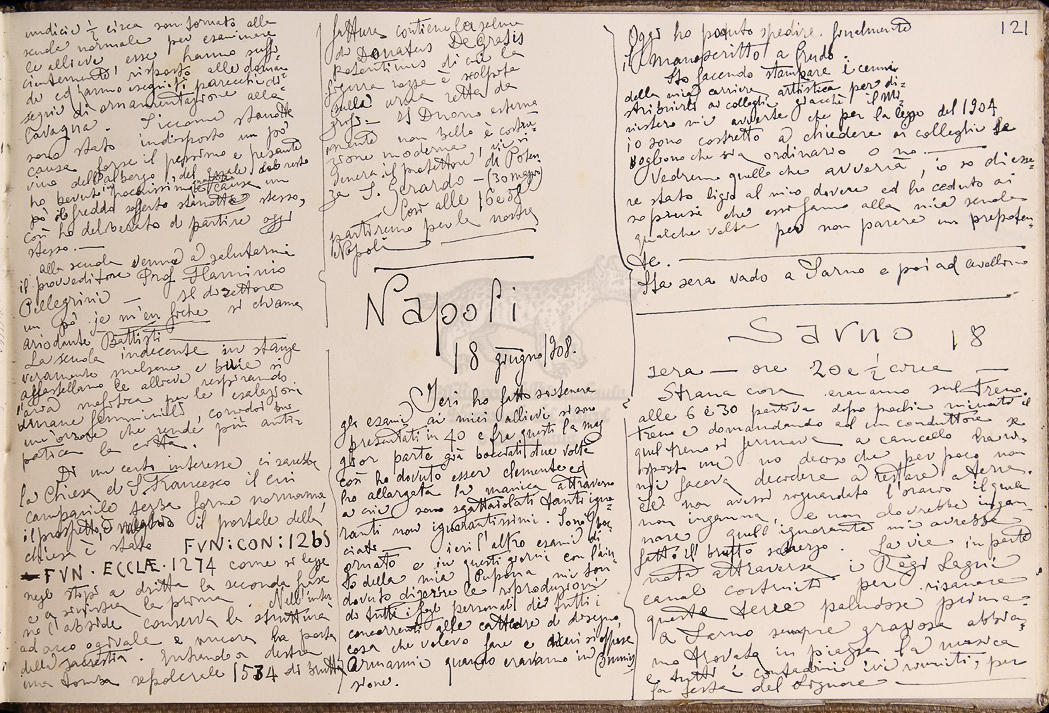 undici e ½ circa son tornato alla
scuola normale per esaminare
le allieve esse hanno suffi
cientemente risposto alle doman
de ed hanno eseguiti parecchi di-
segni di ornamentazione alla
lavagna. Siccome stanotte
sono stato indisposto un po'
causa forse il pessimo e pesante
vino dell'albergo, del quale del resto
ho bevuto pochissimo, e causa un
po' il freddo sofferto stanotte stesso,
così ho deliberato di partire oggi
stesso.—
alla scuola venne a salutarmi
il provveditore Prof. Flaminio
Pellegrini — Il direttore
un po' je m'en fiche si chiama
ariodante Battisti
La scuola indecente in stanze
veramente malsane e buie si
affastellano le allieve e respirando
aria mefitica per le esalazioni
umane femminili, corridoi bui
un'orrore che rende più anti-
patica la casta.
Di un certo interesse ci sarebbe
la Chiesa di S. Francesco il cui
campanile serba forme normanne
il prospetto, e meglio il portale della
chiesa è stato FVN:CON:1265
FVN. ECCLÆ.1274 come si legge
negli stipi a dritta la seconda frase
e a sinistra la prima. Nell'inter
no l'abside conserva la struttura
ad arco ogivale e ancora la porta
della sacrestia. Entrando a destra
una tomba sepolcrale 1534 di brutta
fattura contiene la salma
di Donatus De Grasis
potentinus di cui la
figura rozza è scolpita
sulla urna retta da
grifi= Il Duomo esterna
mente non bello è costru
zione moderna vi si
venera il protettore di Poten
za S. Gerardo — (30 maggio
Così alle 16 e 58
partiremo per la nostra
Napoli
Napoli
18 giugno 1908.
Ieri ho fatto sostenere
gli esami ai miei allievi si sono
presentati in 40 e fra questi la mag
gior parte già bocciati due volte
così ho dovuto esser clemente ed
ho allargata la manica attraverso
a cui sono sgattaiolati tanti igno
ranti non ignorantissimi. Sono
ciate ieri l'altro esami di
ornato e in questi giorni con l'aiu
to della mia Pupona mi son
dovuto digerire le riproduzioni
di tutti i fogli personali dei tutti i
concorrenti alle cattedre di disegno,
cosa che volevo fare e alcuni si offese
Armannio quando eravamo in Commis
sione.
121
Oggi ho potuto spedire finalmente
il manoscritto a Credo.
Sto facendo stampare i cenni
della mia carriera artistica per di-
stribuirli ai colleghi giacchè il Mi-
nistero mi avverte che per la legge del 1904
io sono costretto a chiedere ai colleghi se
vogliono che sia ordinario o no.
Vedremo quello che avverrà, io so di esse
re stato ligio al mio dovere ed ho ceduto ai
soprusi che essi fanno alla mia scuola
qualche volta per non parere un prepoten-
te.
Sta sera vado a Sarno e poi ad avellino
Sarno 18
sera — ore 20 e ½ circa —
Strana cosa eravamo sul treno
alle 6 e 30 partiva dopo pochi minuti il
treno e domandando ad un conduttore se
quel treno si fermava a cancello ha ri-
sposto un no deciso che per poco non
mi faceva decidere a restare a terra.
se non avessi riguardato l'orario il quale
non inganna, e non dovrebbe ingan
nare quell'ignorante mi avrebbe
fatto il brutto scherzo. La via in parte
nota attraversa i Regi Lagni
canali costruiti per risanare
queste terre paludose prima.
a Sarno sempre graziosa abbia-
mo trovata in piazza la musica
e tutti i contadini ivi riuniti, per
la festa del Signore